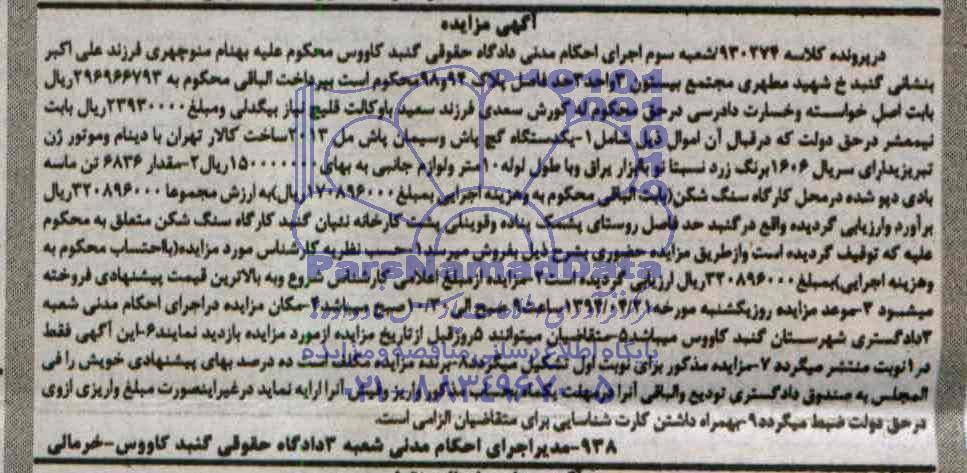 آگهی مزایده
درپرونده کلاسه ۹۳۰۲۷۴/شعبه سوم اجرای احکام مدنی دادگاه حقوقی گنبد کاووس محکوم علیه بهنام منوچهری فرزند علی اکبر
بنشانی گنبد خ شهید مطهری مجتمع بیستون ۳واحد۳حد فاصل پلاک ۹۴و۹۸محکوم است بپرداخت الباقی محکوم به ۲۹۶۹۶۶۷۹۳ریال
بابت اصل خواسته وخسارت دادرسی درحق محکوم له کورش سعدی فرزند سعید باوکالت قلیچ نیاز بیگدلی ومبلغ۲۳۹۳۰۰۰۰ریال بابت
نیمعشر درحق دولت که درقبال آن اموال ذیل شامل۱-یکدستگاه گچ پاش وسیمان پاش مل ۲۰۱۳ساخت کالار تهران با دینام وموتور ژن
تبریزدارای سریال ۱۶۰۶برنگ زرد نسبتا نو باابزار یراق وبا طول لوله ۱۰متر ولوازم جانبی به بهای ۱۵۰۰۰۰۰۰۰ریال۲-مقدار ۶۸۳۶ تن ماسه
بادی دپو شده درمحل کارگاه سنگ شکن(بابت الباقی محکوم به وهزینه اجرایی بمبلغ۱۷۰۸۹۶۰۰۰ریال)به ارزش مجموعا ۳۲۰۸۹۶۰۰۰ریال
برآورد وارزیابی گردیده واقع درگنبد حد فاصل روستای پشمک پناده وقوینلی پشت کارخانه نئپان گنبد کارگاه سنگ شکن متعلق به محکوم
علیه که توقیف گردیده است وازطریق مزایده حضوری بشرح ذیل بفروش میرسد۱-حسب نظریه کارشناس مورد مزایده(بااحتساب محکوم به
وهزینه اجرایی)بمبلغ۳۲۰۸۹۶۰۰۰ریال ارزیابی گردیده است۲-مزایده ازمبلغ اعلامی کارشناس شروع وبه بالاترین قیمت پیشنهادی فروخته
میشود ۳-موعد مزایده روزیکشنبه مورخه ساعت۹صبح الی۱۰/۳۰صبح میباشد۴-مکان مزایده دراجرای احکام مدنی شعبه
۳دادگستری شهرستان گنبد کاووس میباشد۵-متقاضیان میتوانند ۵روزقبل ازتاریخ مزایده ازمورد مزایده بازدید نمایند۶-این آگهی فقط
در۱نوبت منتشر میگردد ۷-مزایده مذکور برای نوبت اول تشکیل میگردد۸-برنده مزایده مکلف است ده درصد بهای پیشنهادی خویش را فی
المجلس به صندوق دادگستری تودیع والباقی آنرا درمهلت یکماه بحساب مذکور واریز وفیش آنرا ارایه نماید درغیراینصورت مبلغ واریزی ازوی
درحق دولت ضبط میگردد۹-بهمراه داشتن کارت شناسایی برای متقاضیان الزامی است.
۹۳۸-مدیراجرای احکام مدنی شعبه ۳دادگاه حقوقی گنبد کاووس-خرمالی
ParsNamadData
پایگاه اطلاع رسانی مناقصه و مزایده
۰۲۱-۸۸۳۴۹۶۷۰-۵